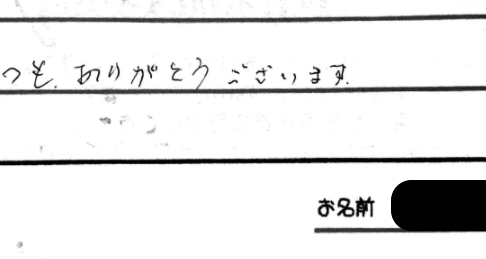 つも、ありがとうございます。
お名前